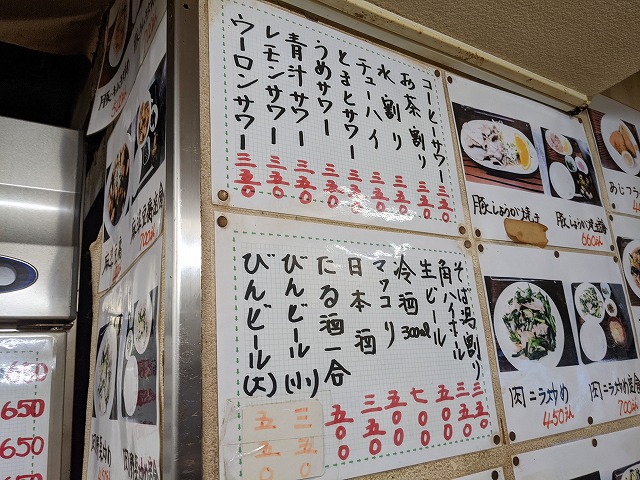 コーヒーサワー 三五〇
お茶割り 三五〇
水割り 三五〇
チューハイ 三五〇
とまとサワー 三五〇
うめサワー 三五〇
青汁サワー 三五〇
レモンサワー 三五〇
ウーロンサワー 三五〇
そば湯割り 三五〇
角ハイボール 三五〇
生ビール 五〇〇
冷酒300ml 七〇〇
マッコリ 五〇〇
日本酒 三五〇
たる酒一合 五〇〇
びんビール(小) 三五〇
びんビール(大) 五五〇
豚しょうが焼き
豚しょうが焼定食
660えん
あじフ
肉ニラ炒め
450えん
肉ニラ炒め定食
700えん
650
650
650